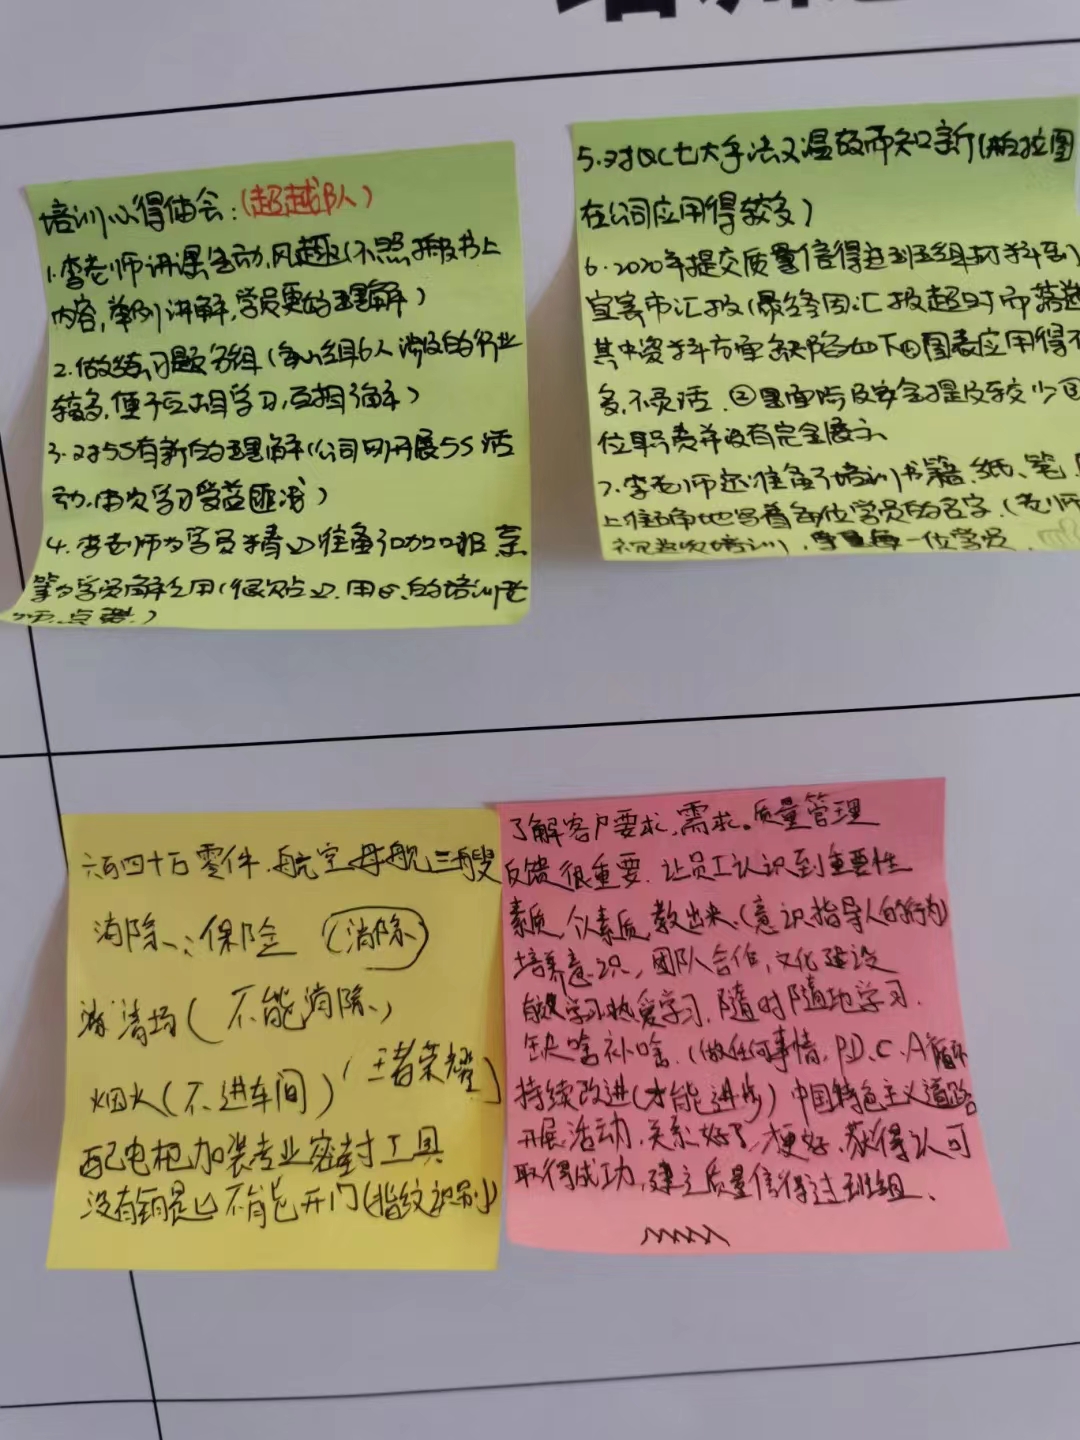 培训心得体会：(超越队)
1.李老师讲课生动,风趣(不照搬书上
内容,举例讲解,学员更的理解)
2.做练习题分组(每小组6人涉及的行业
较多,便于互相学习,互相了解)
3.对5S有新的理解(公司刚开展5S活
动,再次学习受益匪浅)
4.李老师为学员精心准备了咖啡茶
等为学员解乏用(很贴心,用心的培训老
师.点赞)
5.对QC七大手法又温故而知新(柏拉图
在公司应用得较多)
6.2020年提交质量信得过班组材料到
宜宾市汇报(最终因汇报超时而落选
其中资料方面缺陷如下①图表应用得不
多,不灵活.②里面涉及安全提及较少③
位职责并没有完全展示.
7.李老师还准备了培训书籍.纸、笔
上准确地写着每位学员的名字.(老师
培训),尊重每一位学员
六百四十万零件.航空母舰三艘
消除、:保险 (消除)
清场(不能消除、)
烟火(不进车间) (王者荣耀)
配电柜加装专业密封工具
没有钥匙 不能开门(指纹识别)
了解客户要求.需求。质量管理
反馈很重要.让员工认识到重要性
素质,个素质,教出来.(意识指导人的行为)
培养意识,团队合作,文化建设
学习热爱学习,随时随地学习.
缺啥补啥.(做任何事情.P.D.C.A循环
持续改进(才能进步)中国特色主义道路
开展活动,关系好了,才更好.获得认可
取得成功,建立质量信得过班组.